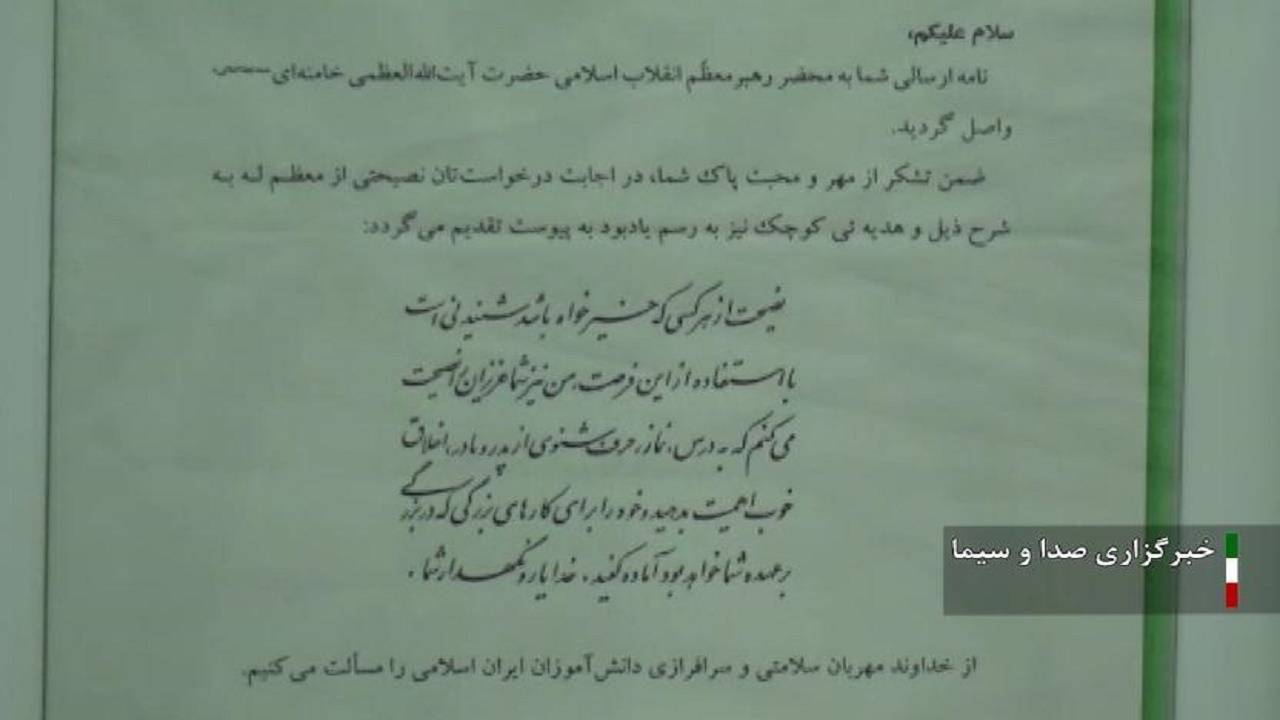 سلام علیکم،
نامه ارسالی شما به محضر رهبر معظّم انقلاب اسلامی حضرت آیت‌الله‌العظمی خامنه‌ای
واصل گردید.
ضمن تشکر از مهر و محبت پاک شما، در اجابت درخواست‌تان نصیحتی از معظم له به
شرح ذیل و هدیه ئی کوچک نیز به رسم یادبود به پیوست تقدیم می گردد:
نصیحت از هر کسی که خیرخواه باشد شنیدنی است
با استفاده از این فرصت، من نیز شما عزیزان را نصیحت
می کنم که به درس، نماز، حرف شنوی از پدر و مادر، اخلاق
خوب اهمیت بدهید و خود را برای کارهای بزرگی که در بزرگی
بر عهده شما خواهد بود آماده کنید. خدا یار و نگهدار شما.
خبرگزاری صدا و سیما
از خداوند مهربان سلامتی و سرافرازی دانش‌آموزان ایران اسلامی را مسألت می کنیم.